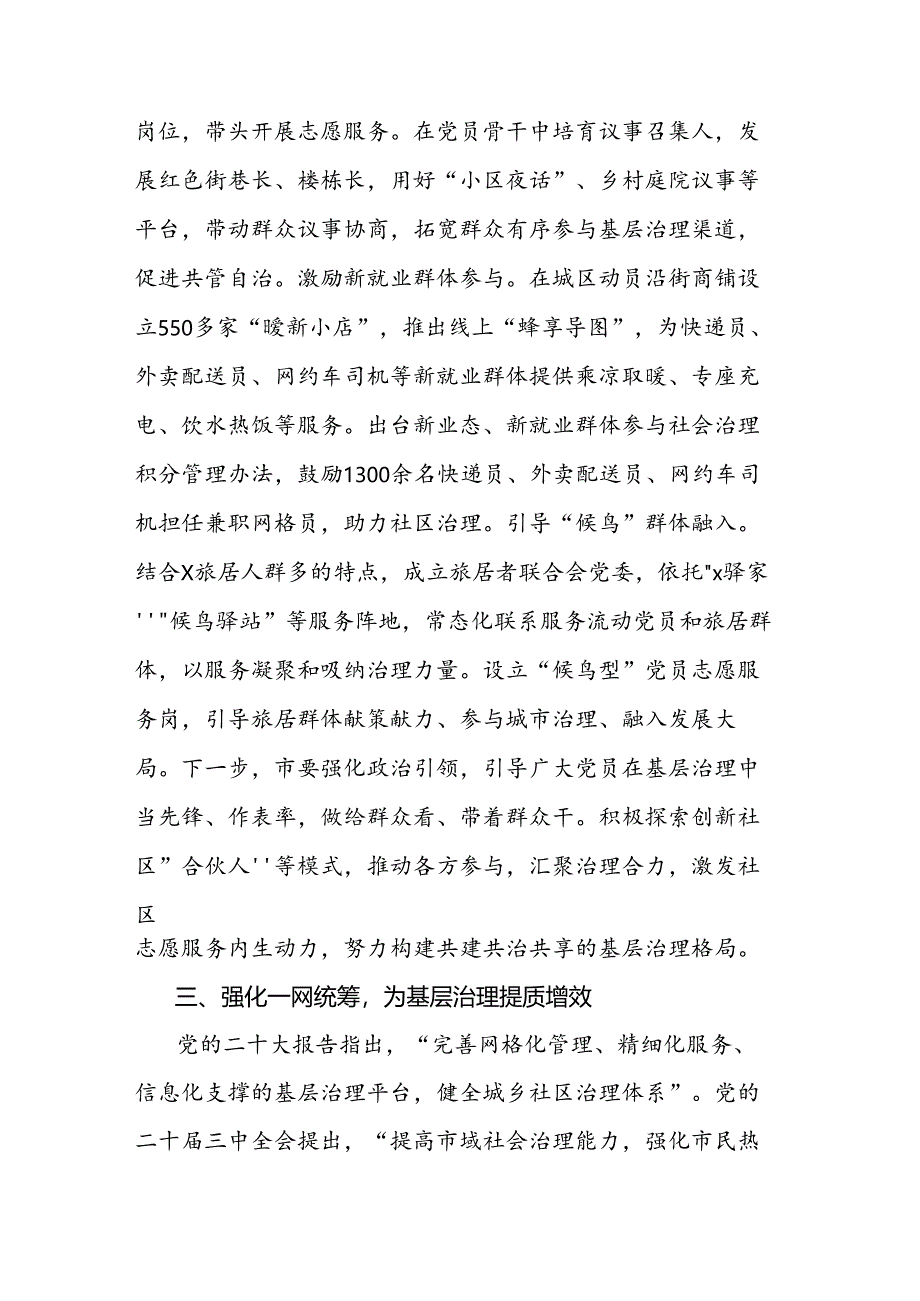 岗位，带头开展志愿服务。在党员骨干中培育议事召集人，发
展红色街巷长、楼栋长，用好“小区夜话”、乡村庭院议事等
平台，带动群众议事协商，拓宽群众有序参与基层治理渠道，
促进共管自治。激励新就业群体参与。在城区动员沿街商铺设
立550多家“暧新小店”，推出线上“蜂享导图”，为快递员、
外卖配送员、网约车司机等新就业群体提供乘凉取暖、专座充
电、饮水热饭等服务。出台新业态、新就业群体参与社会治理
积分管理办法，鼓励1300余名快递员、外卖配送员、网约车司
机担任兼职网格员，助力社区治理。引导“候鸟”群体融入。
结合X旅居人群多的特点，成立旅居者联合会党委，依托"x驿家
''"候鸟驿站”等服务阵地，常态化联系服务流动党员和旅居群
体，以服务凝聚和吸纳治理力量。设立“候鸟型”党员志愿服
务岗，引导旅居群体献策献力、参与城市治理、融入发展大
局。下一步，市要强化政治引领，引导广大党员在基层治理中
当先锋、作表率，做给群众看、带着群众干。积极探索创新社
区”合伙人''等模式，推动各方参与，汇聚治理合力，激发社
区
志愿服务内生动力，努力构建共建共治共享的基层治理格局。
三、强化一网统筹，为基层治理提质增效
党的二十大报告指出，“完善网格化管理、精细化服务、
信息化支撑的基层治理平台，健全城乡社区治理体系”。党的
二十届三中全会提出，“提高市域社会治理能力，强化市民热